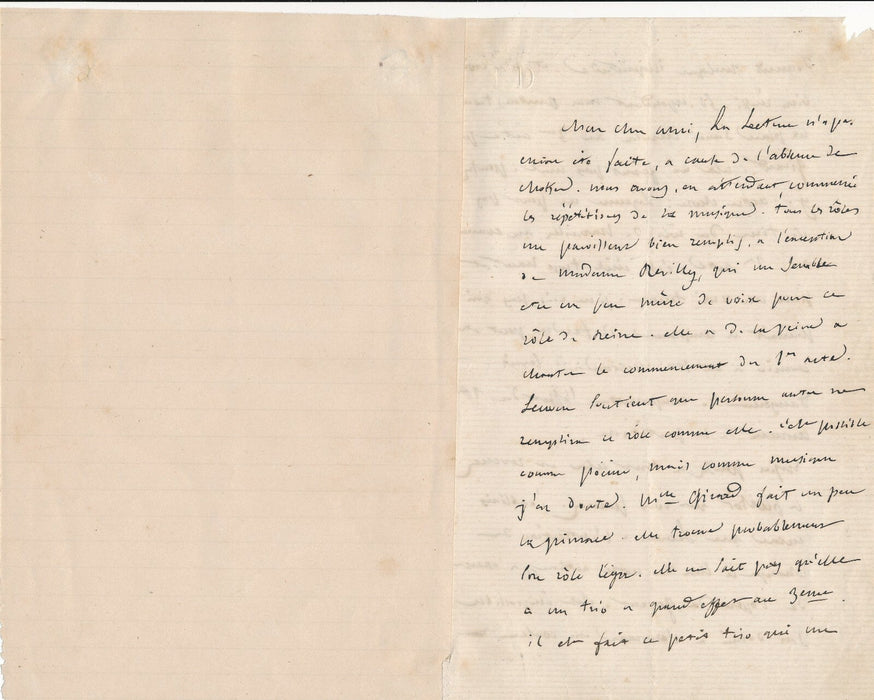 Mon cher ami, La Lecture n'a pas
encore été faite, a cause de l'absence de
nous avons, en attendant, commencé
les répétitions de la musique. Tous les rôles
me paraissent bien remplis, a l'exception
de madame Révilly, qui me semble
etre un peu mûre de voix pour ce
rôle de Reine. elle a de la peine a
chanter le commencement du 1er acte.
Leuven soutient que personne autre ne
remplira ce rôle comme elle. c'est possible
comme pièce, mais comme musique
j'en doute. Mlle Girard fait un peu
la grimace. elle trouve probablement
son rôle léger. elle ne sait pas qu'elle
a un trio a grand effet au 3eme.
il est fait ce petit trio qui me